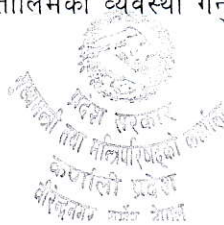 तालिमको व्यवस्था गर्नु
प्रदेश सरकार
मुख्यमन्त्री तथा मन्त्रिपरिषद्को कार्यालय
कर्णाली प्रदेश
वीरेन्द्रनगर सुर्खेत नेपाल